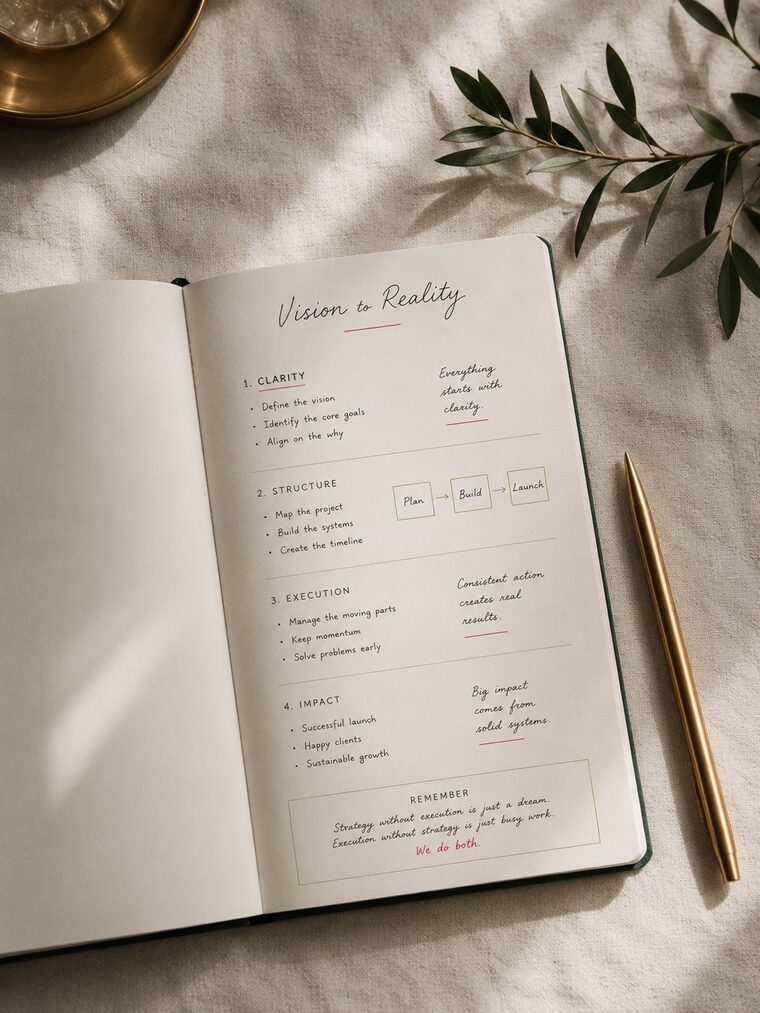 Vision to Reality
1. CLARITY
• Define the vision
• Identify the core goals
• Align on the why
Everything
starts with
clarity.
2. STRUCTURE
• Map the project
• Build the systems
• Create the timeline
Plan → Build → Launch
3. EXECUTION
• Manage the moving parts
• Keep momentum
• Solve problems early
Consistent action
creates real
results.
4. IMPACT
• Successful launch
• Happy clients
• Sustainable growth
Big impact
comes from
solid systems.
REMEMBER
Strategy without execution is just a dream.
Execution without strategy is just busy work.
We do both.